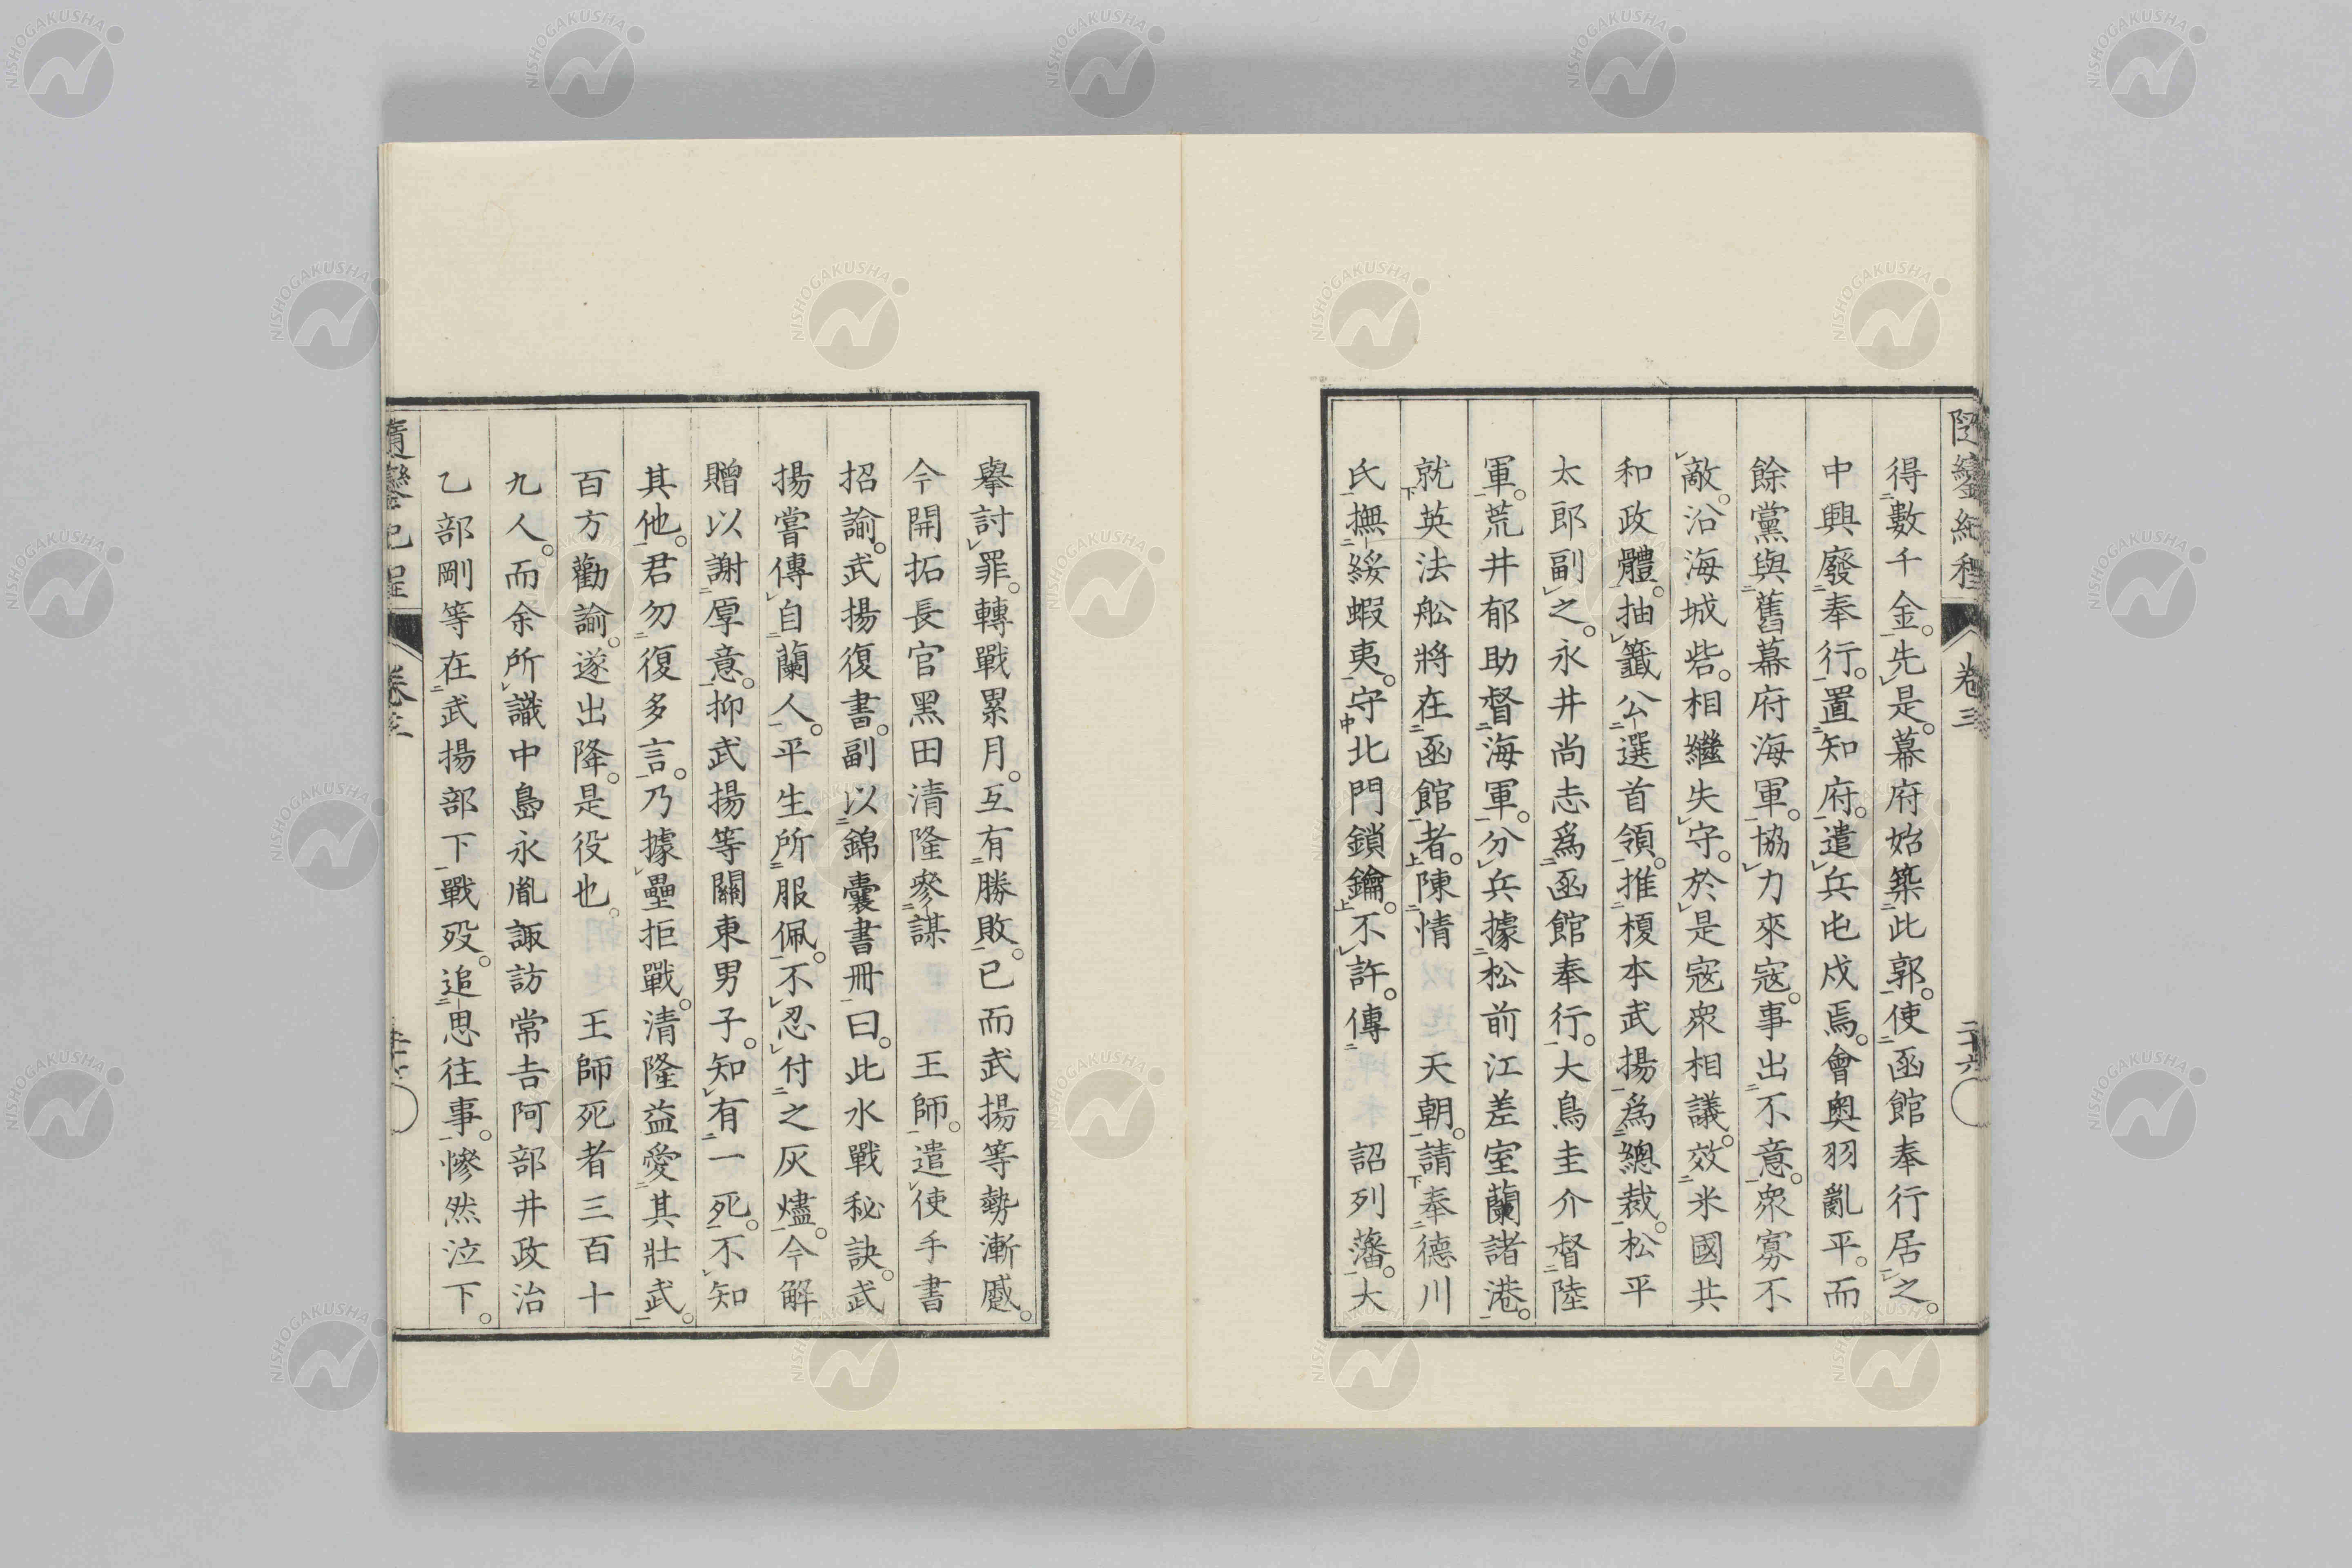 隨鑾紀程 卷三 二十六
得數千金。先是。幕府始築此郭。使函館奉行居之。
中興廢奉行。置知府。遣兵屯戍焉。會奧羽亂平。而
餘黨與舊幕府海軍。協力來寇。事出不意。衆寡不
敵。沿海城砦。相繼失守。於是寇衆相議。效米國共
和政體。抽籤公選首領。推榎本武揚爲總裁。松平
太郎副之。永井尚志爲函館奉行。大鳥圭介督陸
軍。荒井郁助督海軍。分兵據松前江差室蘭諸港。
就英法舩將在函館者。陳情　天朝。請奉德川
氏撫綏蝦夷。守北門鎖鑰。不許。傳　詔列藩。大
擧討罪。轉戰累月。互有勝敗。已而武揚等勢漸蹙。
今開拓長官黑田清隆參謀　王師。遣使手書
招諭。武揚復書。副以錦囊書冊曰。此水戰秘訣。武
揚嘗傳自蘭人。平生所服佩。不忍付之灰燼。今解
贈以謝厚意。抑武揚等關東男子。知有一死。不知
其他。君勿復多言。乃據壘拒戰。清隆益愛其壯武。
百方勸諭。遂出降。是役也。　王師死者三百十
九人。而余所識中島永胤諏訪常吉阿部井政治
乙部剛等在武揚部下戰歿。追思往事。慘然泣下。
隨鑾紀程 卷三